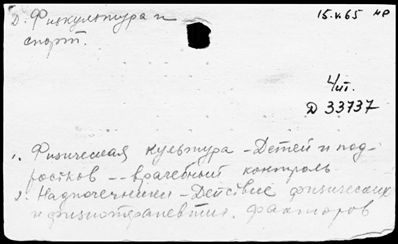 Д. Физкультура и
спорт.
15.V.65 НР
Чит.
Д 33737
1. Физическая культура - Детей и под-
ростков -- врачебный контроль.
2. Надпочечники - Действие физических
и физиотерапевтич. факторов